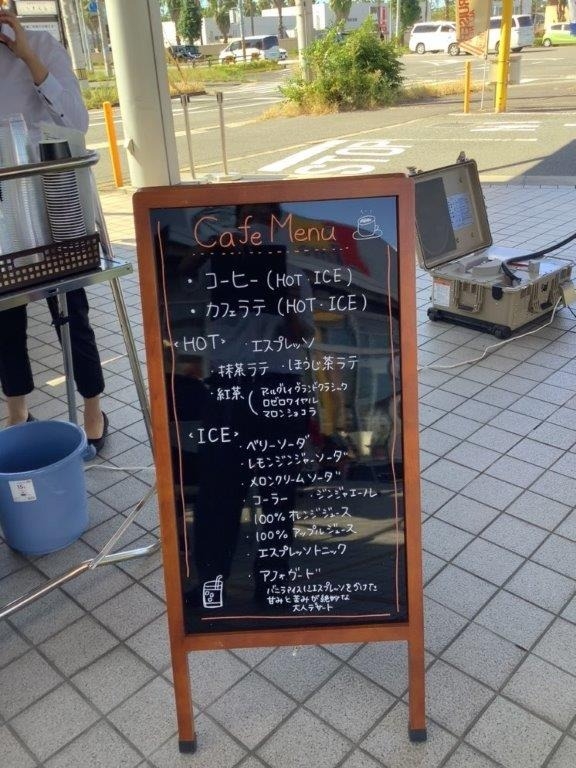 Cafe Menu
・コーヒー（HOT・ICE）
・カフェラテ（HOT・ICE）
<HOT> ・エスプレッソ
・抹茶ラテ ・ほうじ茶ラテ
・紅茶（アールグレイグランドクラシック
ロゼロワイヤル
マロンショコラ
<ICE>
・ベリーソーダ
・レモンジンジャーソーダ
・メロンクリームソーダ
・コーラー ・ジンジャエール
・100％オレンジジュース
・100％アップルジュース
・エスプレッソトニック
・アフォガード
バニラアイスにエスプレッソをかけた
甘みと苦みが絶妙な
大人デザート
STOP